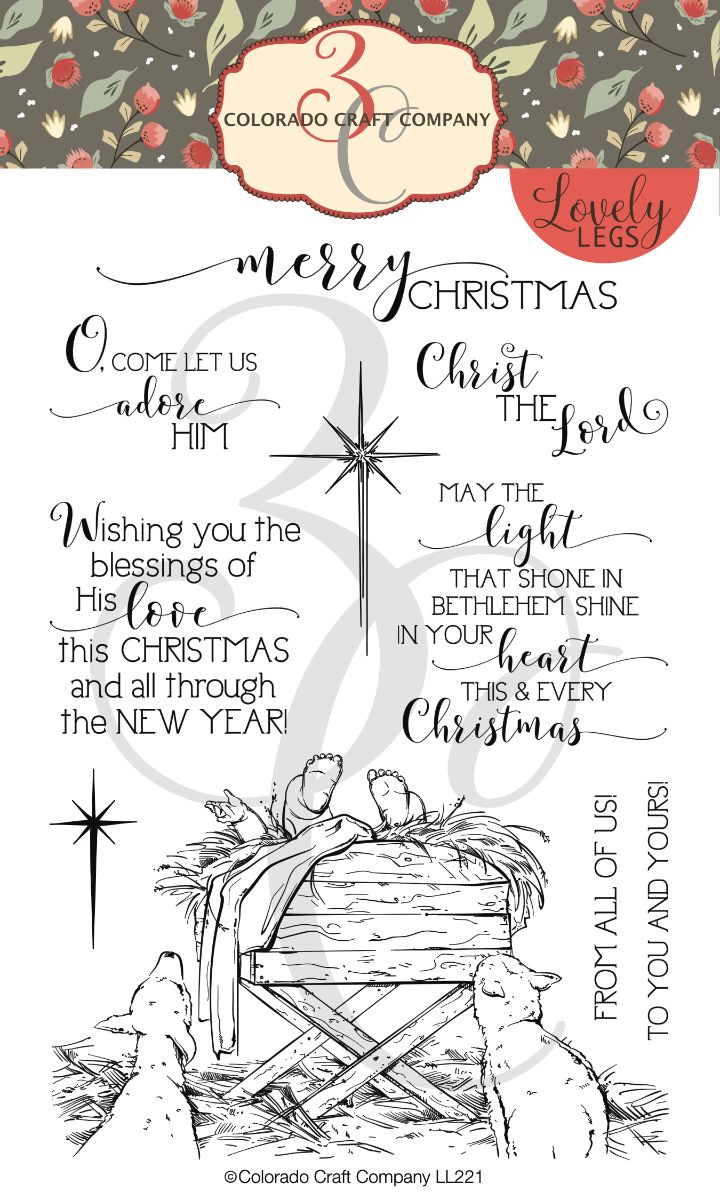 3C
COLORADO CRAFT COMPANY
Lovely
LEGS
merry
CHRISTMAS
O, COME LET US
adore
HIM
Christ
THE
Lord
MAY THE
light
THAT SHONE IN
BETHLEHEM SHINE
IN YOUR
heart
THIS & EVERY
Christmas
Wishing you the
blessings of
His love
this CHRISTMAS
and all through
the NEW YEAR!
FROM ALL OF US!
TO YOU AND YOURS!
3C
©Colorado Craft Company LL221